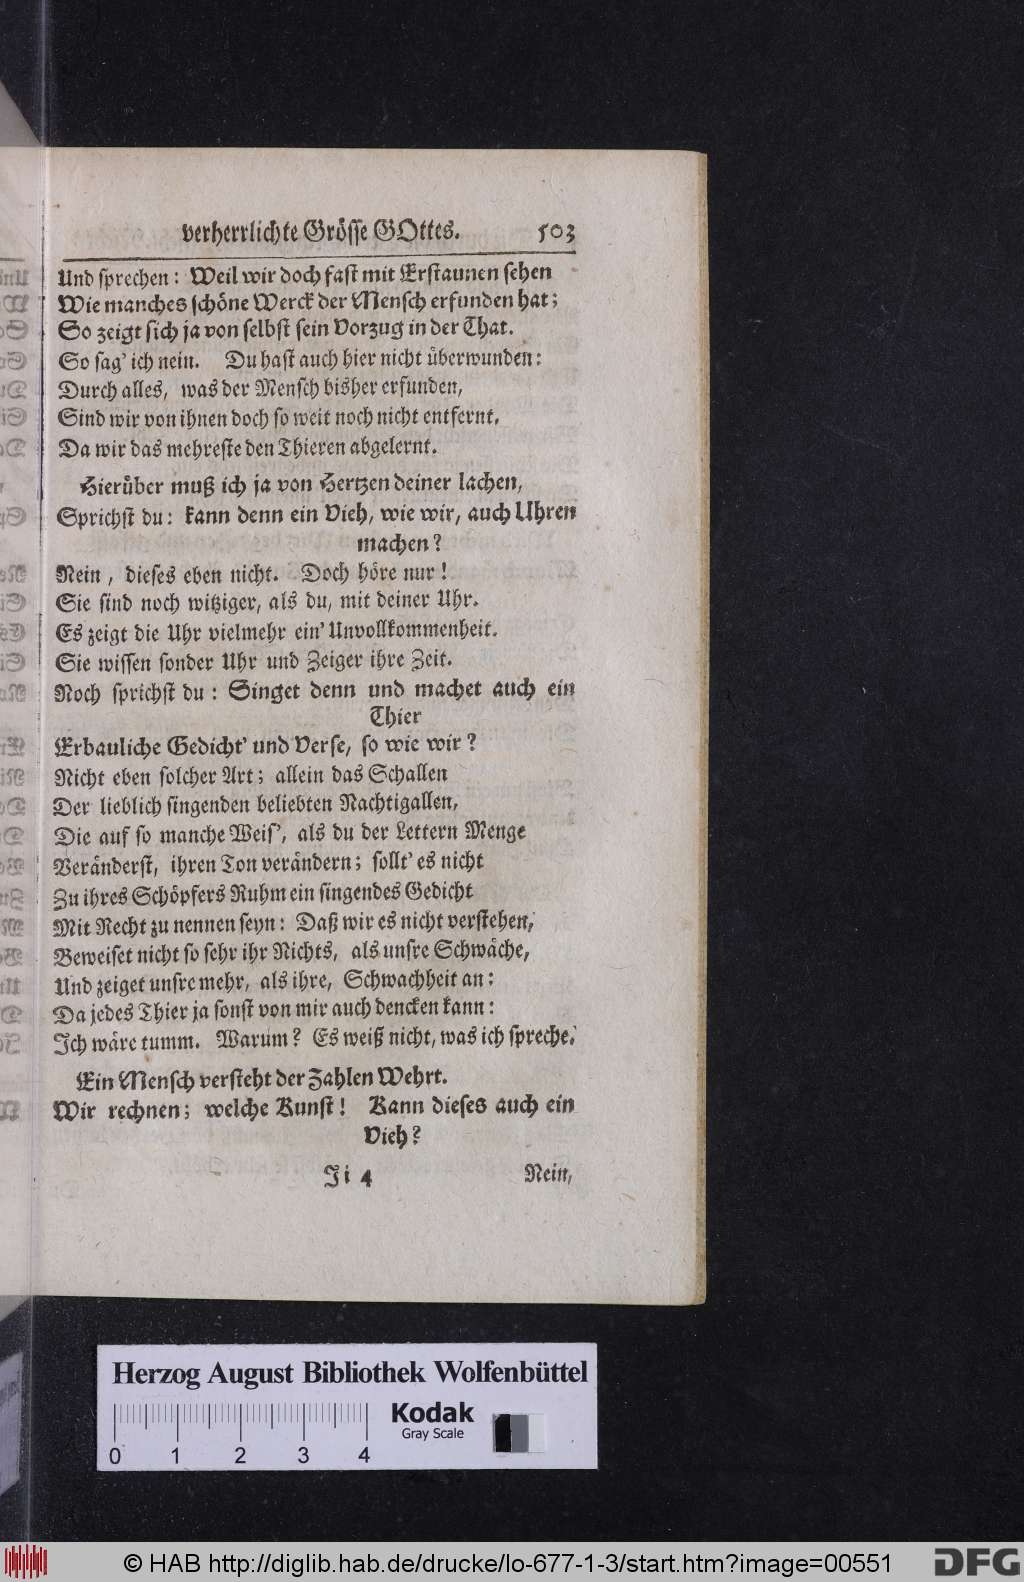 verherrlichte Grösse GOttes. 503
Und sprechen: Weil wir doch fast mit Erstaunen sehen
Wie manches schöne Werck der Mensch erfunden hat;
So zeigt sich ja von selbst sein Vorzug in der That.
So sag' ich nein. Du hast auch hier nicht überwunden:
Durch alles, was der Mensch bisher erfunden,
Sind wir von ihnen doch so weit noch nicht entfernt,
Da wir das mehreste den Thieren abgelernt.
Hierüber muß ich ja von Hertzen deiner lachen,
Sprichst du: kann denn ein Vieh, wie wir, auch Uhren
machen?
Nein, dieses eben nicht. Doch höre nur!
Sie sind noch witziger, als du, mit deiner Uhr.
Es zeigt die Uhr vielmehr ein' Unvollkommenheit.
Sie wissen sonder Uhr und Zeiger ihre Zeit.
Noch sprichst du: Singet denn und machet auch ein
Thier
Erbauliche Gedicht' und Verse, so wie wir?
Nicht eben solcher Art; allein das Schallen
Der lieblich singenden beliebten Nachtigallen,
Die auf so manche Weis', als du der Lettern Menge
Veränderst, ihren Ton verändern; sollt' es nicht
Zu ihres Schöpfers Ruhm ein singendes Gedicht
Mit Recht zu nennen seyn: Daß wir es nicht verstehen,
Beweiset nicht so sehr ihr Nichts, als unsre Schwäche,
Und zeiget unsre mehr, als ihre, Schwachheit an:
Da jedes Thier ja sonst von mir auch dencken kann:
Ich wäre tumm. Warum? Es weiß nicht, was ich spreche.
Ein Mensch versteht der Zahlen Wehrt.
Wir rechnen; welche Kunst! Kann dieses auch ein
Vieh?
Ji 4 Nein,
Herzog August Bibliothek Wolfenbüttel
Kodak
Gray Scale
0 1 2 3 4
© HAB http://diglib.hab.de/drucke/lo-677-1-3/start.htm?image=00551
DFG